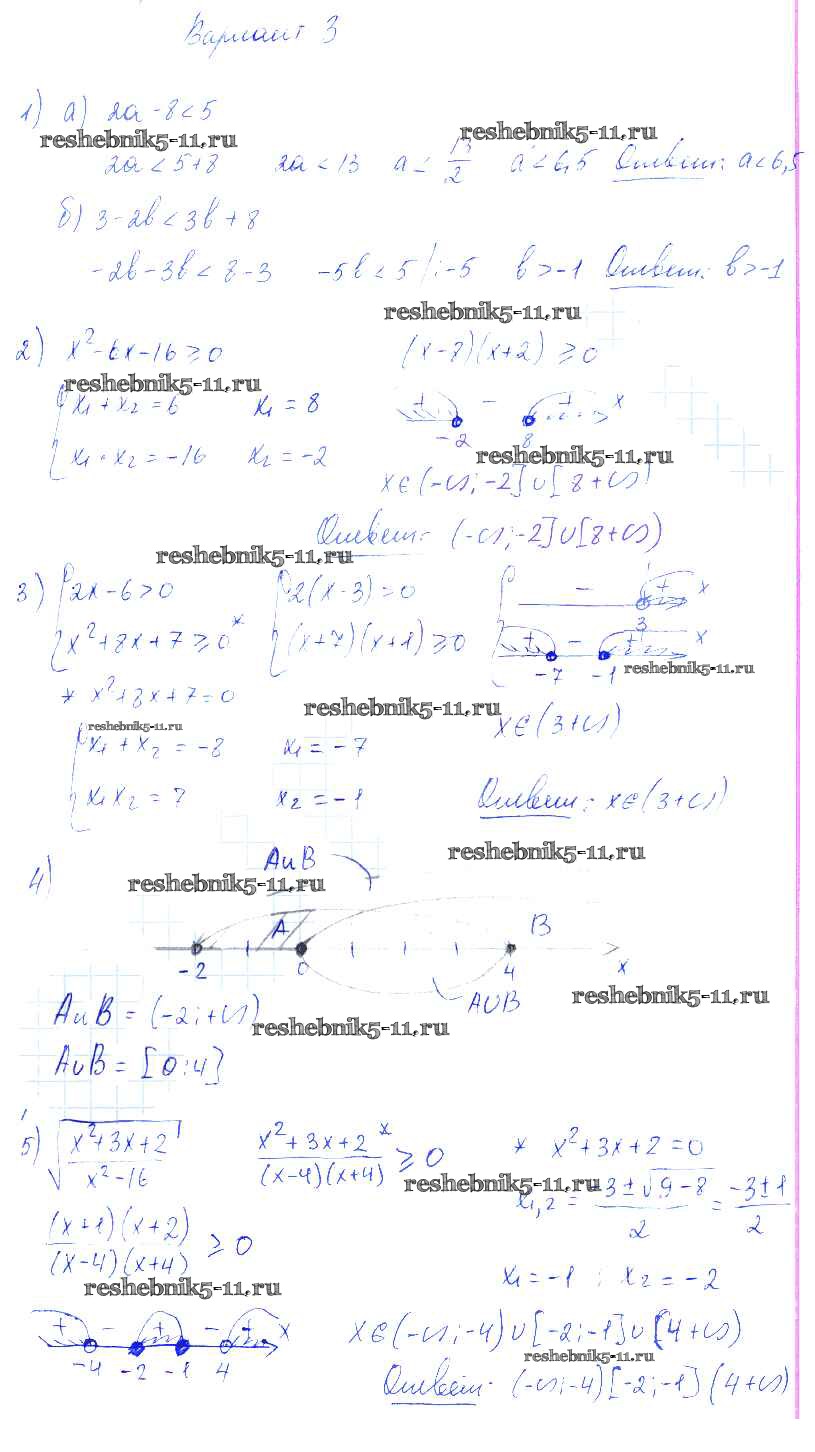 Вариант 3
1) а) 2a - 8 < 5
reshebnik5-11.ru reshebnik5-11.ru
2a < 5+8 2a < 13 a < 13/2 a < 6,5 Ответ: a < 6,5
б) 3 - 2b < 3b + 8
-2b - 3b < 8 - 3 -5b < 5 |: -5 b > -1 Ответ: b > -1
reshebnik5-11.ru
2) x² - 6x - 16 ≥ 0 (x-8)(x+2) ≥ 0
reshebnik5-11.ru
{ x₁ + x₂ = 6 x₁ = 8 + - + x
x₁ · x₂ = -16 x₂ = -2 -2 8
reshebnik5-11.ru
x ∈ (-∞; -2] ∪ [8 +∞)
Ответ: (-∞; -2] ∪ [8 +∞)
reshebnik5-11.ru
3) { 2x - 6 > 0 { 2(x-3) = 0 - + x
3
x² + 8x + 7 ≥ 0* (x+7)(x+1) ≥ 0 + - + x
-7 -1 reshebnik5-11.ru
* x² + 8x + 7 = 0
reshebnik5-11.ru
reshebnik5-11.ru x ∈ (3 +∞)
{ x₁ + x₂ = -8 x₁ = -7
x₁ x₂ = 7 x₂ = -1 Ответ: x ∈ (3 +∞)
reshebnik5-11.ru
4) A∩B
reshebnik5-11.ru
A B
-2 0 4 x
A∪B
reshebnik5-11.ru
A∩B = (-2; +∞)
reshebnik5-11.ru
A∪B = [0; 4]
5) √((x²+3x+2)/(x²-16)) (x²+3x+2*)/((x-4)(x+4)) ≥ 0 * x² + 3x + 2 = 0
reshebnik5-11.ru
x₁,₂ = (-3 ± √(9-8))/2 = (-3 ± 1)/2
((x+1)(x+2))/((x-4)(x+4)) ≥ 0
reshebnik5-11.ru
x₁ = -1 ; x₂ = -2
+ - + - + x x ∈ (-∞; -4) ∪ [-2; -1] ∪ (4 +∞)
-4 -2 -1 4
reshebnik5-11.ru
Ответ: (-∞; -4) [-2; -1] (4 +∞)